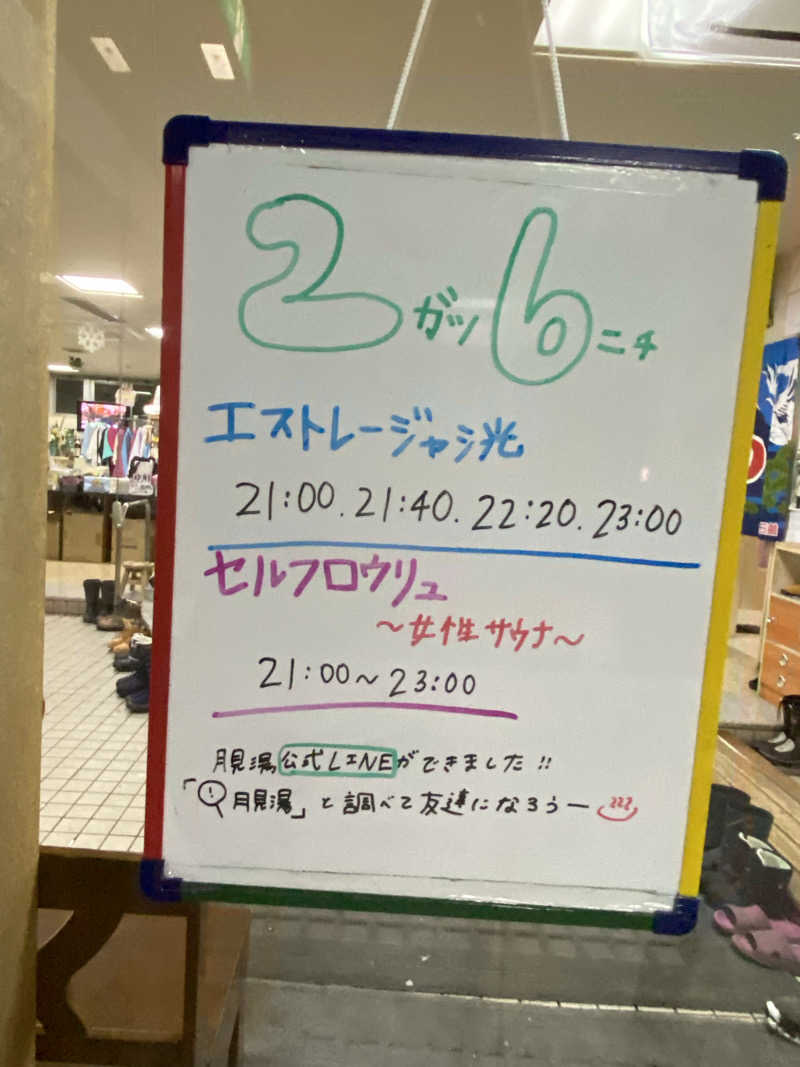 2ガツ6ニチ
エストレージャシ光
21:00.21:40.22:20.23:00
セルフロウリュ
〜女性サウナ〜
21:00〜23:00
月見湯公式LINEができました!!
「月見湯」と調べて友達になろうー